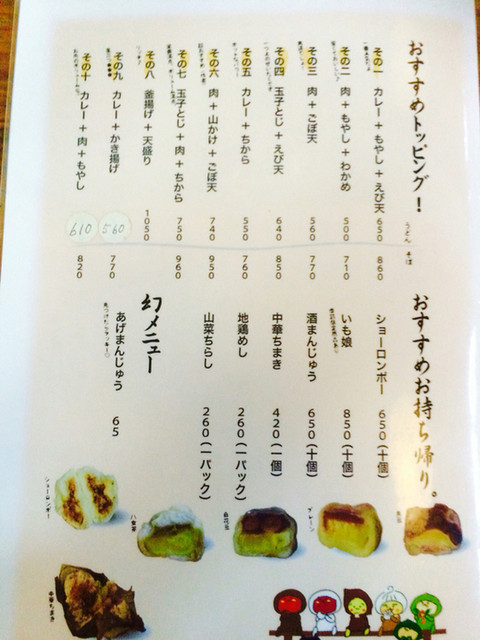 おすすめトッピング！
うどん そば
その一 カレー + もやし + えび天 650 860
その二 肉 + もやし + わかめ 500 710
その三 肉 + ごぼ天 560 770
その四 玉子とじ + えび天 640 850
その五 カレー + ちから 550 760
その六 肉 + 山かけ + ごぼ天 740 950
その七 玉子とじ + 肉 + ちから 750 960
その八 釜揚げ + 天盛り 1050
その九 カレー + かき揚げ 560 770
その十 カレー + 肉 + もやし 610 820
おすすめお持ち帰り。
ショーロンポー 650（十個）
いも娘 850（十個）
酒まんじゅう 650（十個）
中華ちまき 420（一個）
地鶏めし 260（一パック）
山菜ちらし 260（一パック）
幻メニュー
あげまんじゅう 65
見つけたらラッキー♡
ショーロンポー
中華ちまき
八女茶
白花豆
プレーン